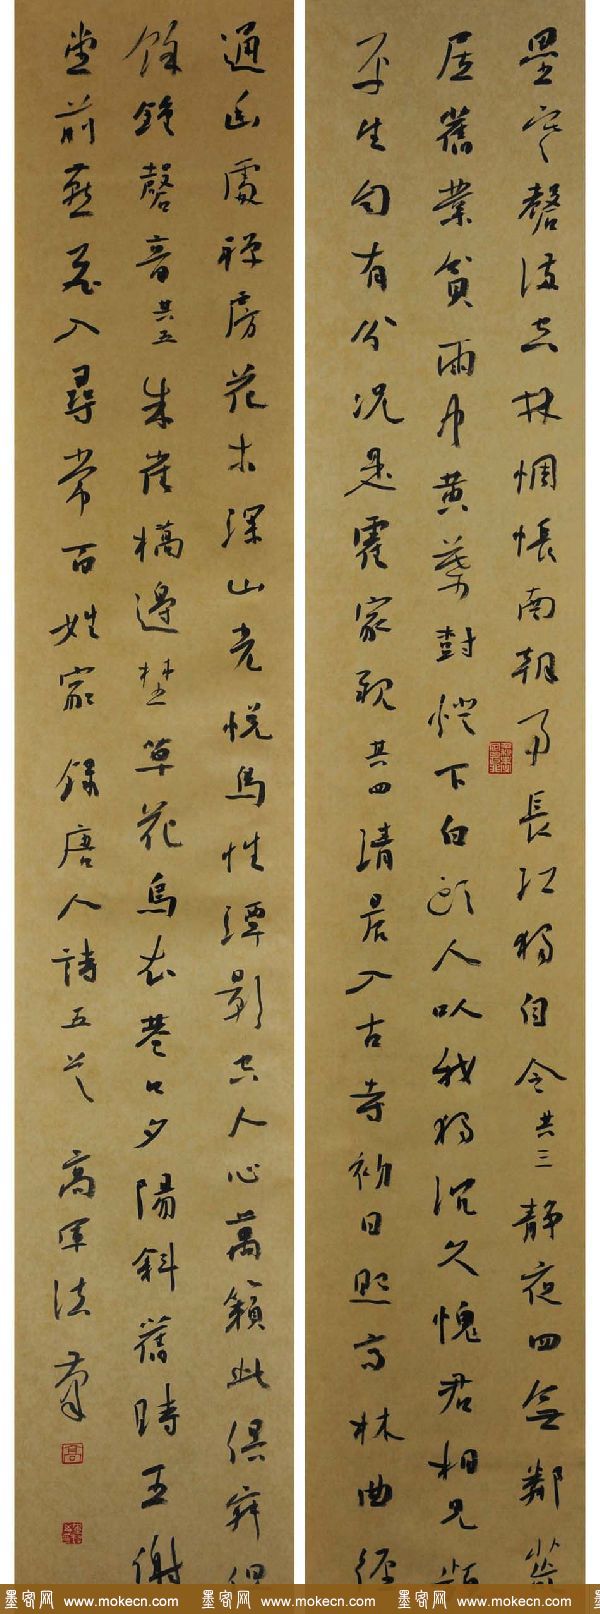 壘寒磬滿空林惆悵南朝事長江獨自今其三靜夜四無鄰荒
居舊業貧雨中黃葉樹燈下白頭人以我獨沉久愧君相見頻
平生自有分況是霍家親其四清晨入古寺初日照高林曲徑
通幽處禪房花木深山光悅鳥性潭影空人心萬籟此俱寂但
餘鐘磬音其五朱雀橋邊野草花烏衣巷口夕陽斜舊時王謝
堂前燕飛入尋常百姓家錄唐人詩五首 高軍法
墨客网 www.mokecn.com 墨客网 www.mokecn.com 墨客网 www.mokecn.com